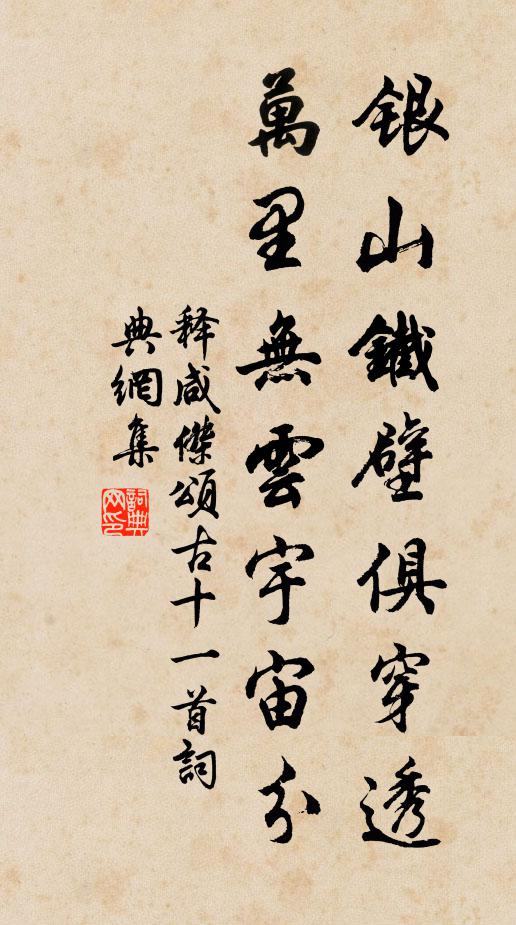 銀山鐵壁俱穿透
萬里無雲宇宙分
释咸傑頌古十一首詞
典網集
詞典
网印